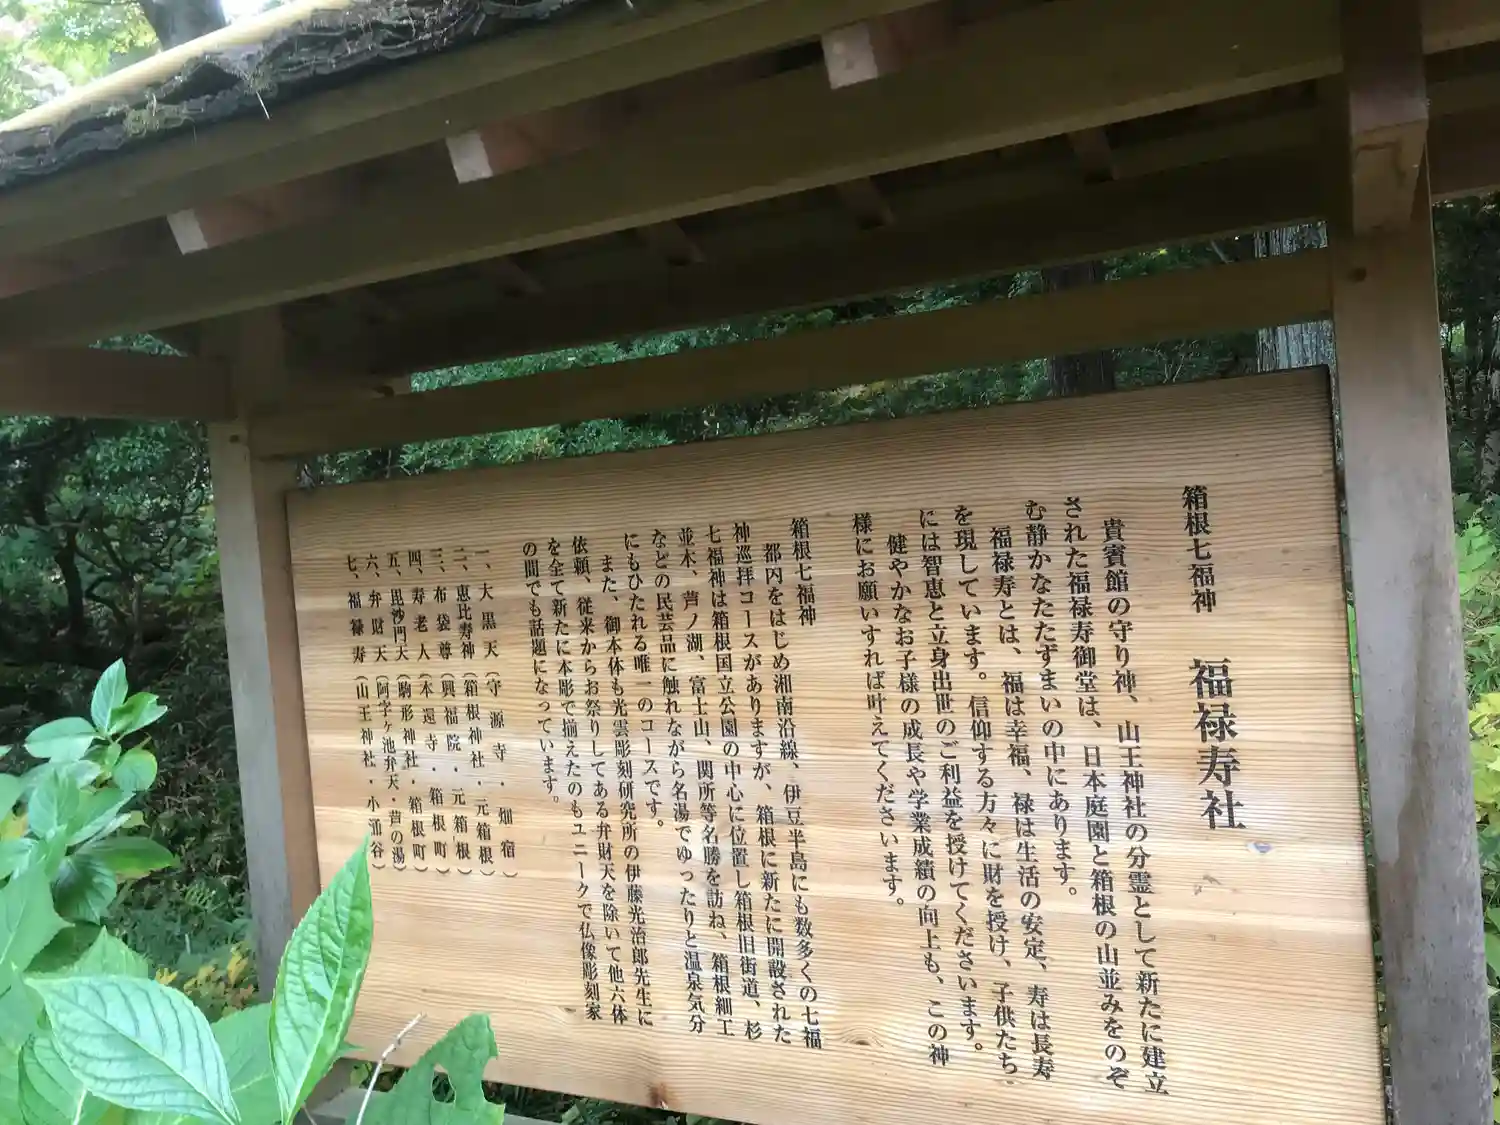 箱根七福神　福禄寿社
貴賓館の守り神、山王神社の分霊として新たに建立
された福禄寿御堂は、日本庭園と箱根の山並みをのぞ
む静かなたたずまいの中にあります。
福禄寿とは、福は幸福、禄は生活の安定、寿は長寿
を現しています。信仰する方々に財を授け、子供たち
には智恵と立身出世のご利益を授けてくださいます。
健やかなお子様の成長や学業成績の向上も、この神
様にお願いすれば叶えてくださいます。
箱根七福神
都内をはじめ湘南沿線、伊豆半島にも数多くの七福
神巡拝コースがありますが、箱根に新たに開設された
七福神は箱根国立公園の中心に位置し箱根旧街道、杉
並木、芦ノ湖、富士山、関所等名勝を訪ね、箱根細工
などの民芸品に触れながら名湯でゆったりと温泉気分
にもひたれる唯一のコースです。
また、御本体も光雲彫刻研究所の伊藤光治郎先生に
依頼、従来からお祭りしてある弁財天を除いて他六体
を全て新たに本彫で揃えたのもユニークで仏像彫刻家
の間でも話題になっています。
一、大黒天（守源寺・畑宿）
二、恵比寿神（箱根神社・元箱根）
三、布袋尊（興福院・元箱根）
四、寿老人（本還寺・箱根町）
五、毘沙門天（駒形神社・箱根町）
六、弁財天（阿字ヶ池弁天・芦の湯）
七、福禄寿（山王神社・小涌谷）